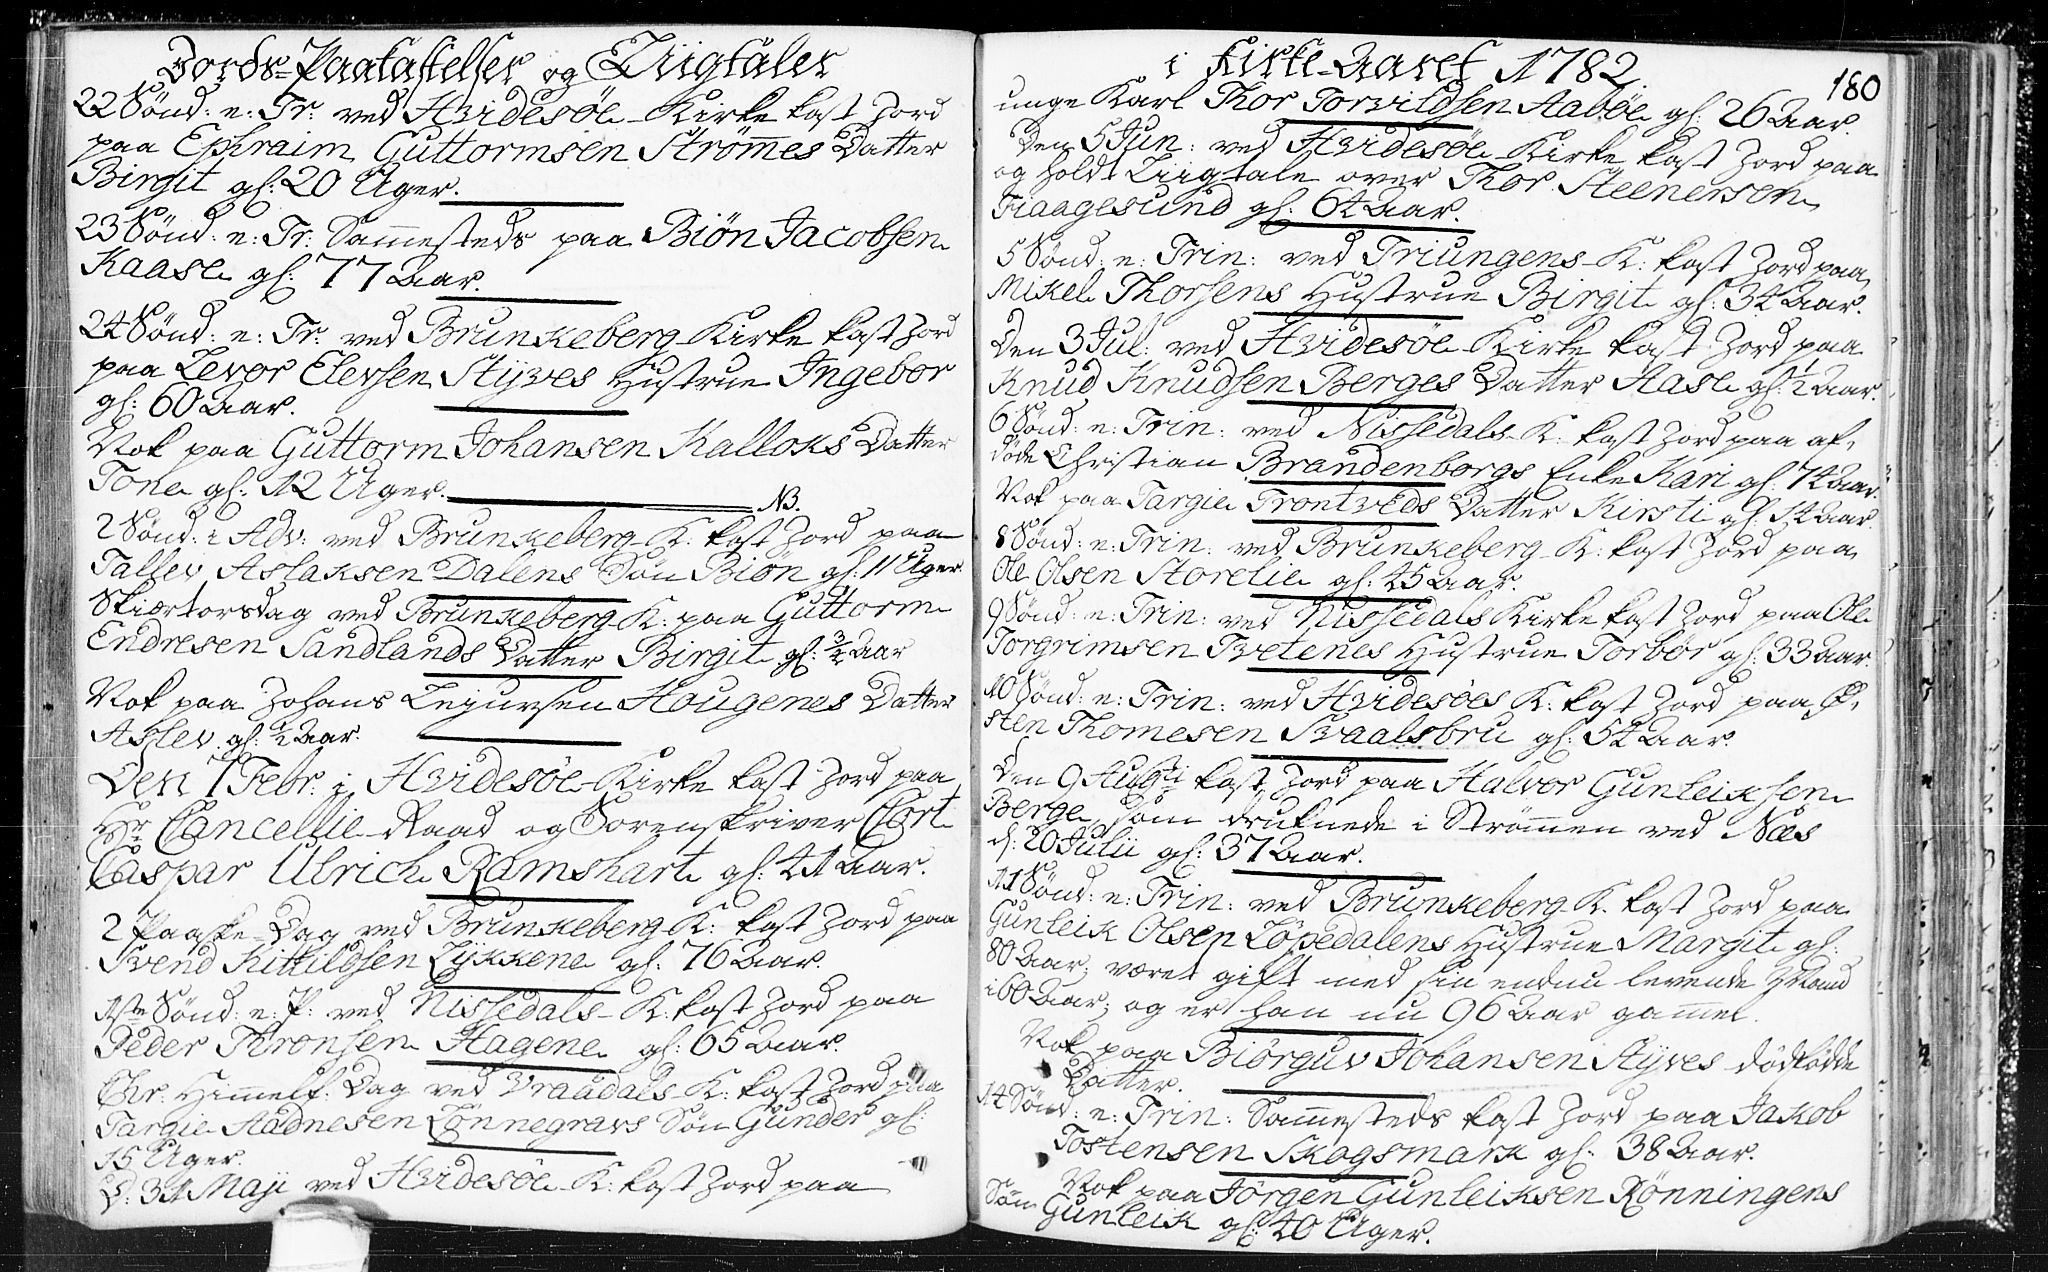 Jords-Paakastelser og Liigtaler
22 Sönd: e: Tr: ved Hvidesöe Kirke kast Jord
paa Ephraim Guttormsen Strömes Datter
Birgit gl: 20 Uger.
23 Sönd: e: Tr: Sammesteds paa Biön Jacobsen
Kaase gl: 77 Aar.
24 Sönd: e: Tr: ved Brunkeberg Kirke kast Jord
paa Levor Elevsen Styves Hustrue Ingebor
gl: 60 Aar.
Nok paa Guttorm Johansen Kalloks Datter
Tone gl: 12 Uger. NB.
2 Sönd: i Adv: ved Brunkeberg K: kast Jord paa
Tallev Aslaksen Dalens Sön Biön gl: 11 Uger
Skiærtorsdag ved Brunkeberg K: paa Guttorm
Endresen Sandlands Datter Birgit gl: 3/4 Aar
Nok paa Johans Lejursen Haugenes Datter
Aslev gl: 1/2 Aar.
Den 7 Febr: i Hvidesöe Kirke kast Jord paa
Hr Cancellie-Raad og Sorenskriver Cort
Caspar Ulrich Ramshart gl: 41 Aar.
2 Paaske-Dag ved Brunkeberg K: kast Jord paa
Svend Kittildsen Lykkene gl: 76 Aar.
1ste Sönd: e: P: ved Nissedals K: kast Jord paa
Peder Thronsen Hagene gl: 65 Aar.
Chr: Himmelf: Dag ved Vraadals K: kast Jord paa
Targie Aadnesen Lönnegravs Sön Gunder gl:
15 Uger.
D: 31 Maji ved Hvidesöe K: kast Jord paa
i Kirke-Aaret 1782. 180
unge Karl Thor Torvildsen Aaböe gl: 26 Aar.
Den 5 Jun: ved Hvidesöe Kirke kast Jord paa
og holdt Liigtale over Thor Steenersen
Fraagesund gl: 64 Aar.
5 Sönd: e: Trin: ved Triungens K: kast Jord paa
Mikel Thorsens Hustrue Birgit gl: 34 Aar.
Den 3 Jul: ved Hvidesöe Kirke kast Jord paa
Knud Knudsen Berges Datter Aase gl: 1/2 Aar.
6 Sönd: e: Trin: ved Nissedals K: kast Jord paa af-
döde Christian Brandenborgs Enke Kari gl: 74 Aar.
Nok paa Targie Trontveds Datter Kirsti gl: 14 Aar.
8 Sönd: e: Trin: ved Brunkeberg K: kast Jord paa
Ole Olsen Storelie gl: 45 Aar.
9 Sönd: e: Trin: ved Nissedals Kirke kast Jord paa Ole
Torgrimsen Tvetenes Hustrue Torbör gl: 33 Aar.
10 Sönd: e: Trin: ved Hvidesöes K: kast Jord paa Ö-
sten Thomesen Svaalsbru gl: 54 Aar.
Den 9 Augti kast Jord paa Halvor Gunleiksen
Berge, som druknede i Strömmen ved Næs
d: 20 Julii gl: 37 Aar.
11 Sönd: e: Trin: ved Brunkeberg K. kast Jord paa
Gunleik Olsen Löpedalens Hustrue Margit gl:
80 Aar; været gift med sin endnu levende Mand
i 60 Aar; og er han nu 96 Aar gammel.
Nok paa Biörguv Johansen Styves dödfödde
Datter.
14 Sönd: e: Trin: Sammesteds kast Jord paa Jakob
Tostensen Skogsmark gl: 38 Aar.
Nok paa Jörgen Gunleiksen Rönningens
Sön Gunleik gl: 40 Uger.